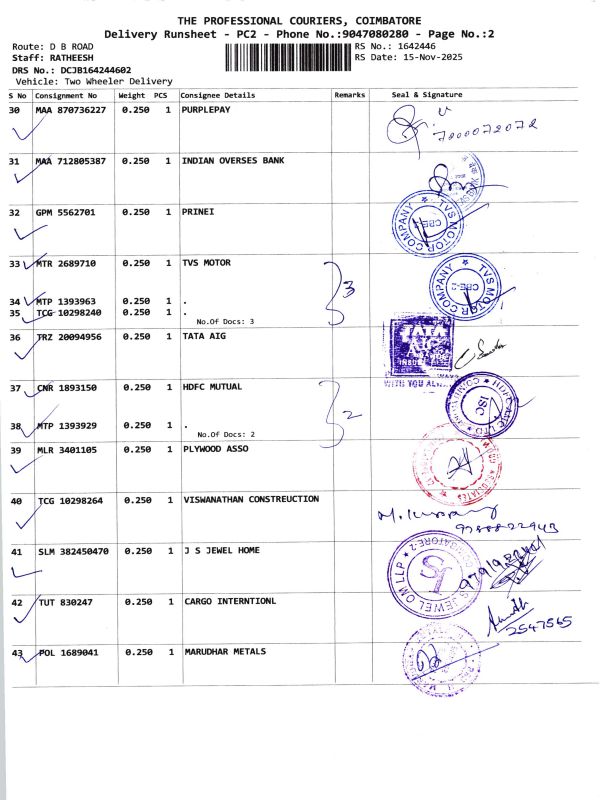 THE PROFESSIONAL COURIERS, COIMBATORE
Delivery Runsheet - PC2 - Phone No.:9047080280 - Page No.:2
Route: D B ROAD RS No.: 1642446
Staff: RATHEESH RS Date: 15-Nov-2025
DRS No.: DCJB164244602
Vehicle: Two Wheeler Delivery
S No Consignment No Weight PCS Consignee Details Remarks Seal & Signature
30 MAA 870736227 0.250 1 PURPLEPAY
7800072072
31 MAA 712805387 0.250 1 INDIAN OVERSES BANK
32 GPM 5562701 0.250 1 PRINEI
TVS MOTOR COMPANY CBE-2
33 MTR 2689710 0.250 1 TVS MOTOR
TVS MOTOR COMPANY CBE-2
34 MTP 1393963 0.250 1 .
3
35 TCG 10298240 0.250 1 .
No.Of Docs: 3
36 TRZ 20094956 0.250 1 TATA AIG
TATA AIG
WITH YOU ALWAYS
37 CNR 1893150 0.250 1 HDFC MUTUAL
ISC
2
38 MTP 1393929 0.250 1 .
No.Of Docs: 2
39 MLR 3401105 0.250 1 PLYWOOD ASSO
40 TCG 10298264 0.250 1 VISWANATHAN CONSTREUCTION
9788822943
41 SLM 382450470 0.250 1 J S JEWEL HOME
42 TUT 830247 0.250 1 CARGO INTERNTIONL
2547565
43 POL 1689041 0.250 1 MARUDHAR METALS